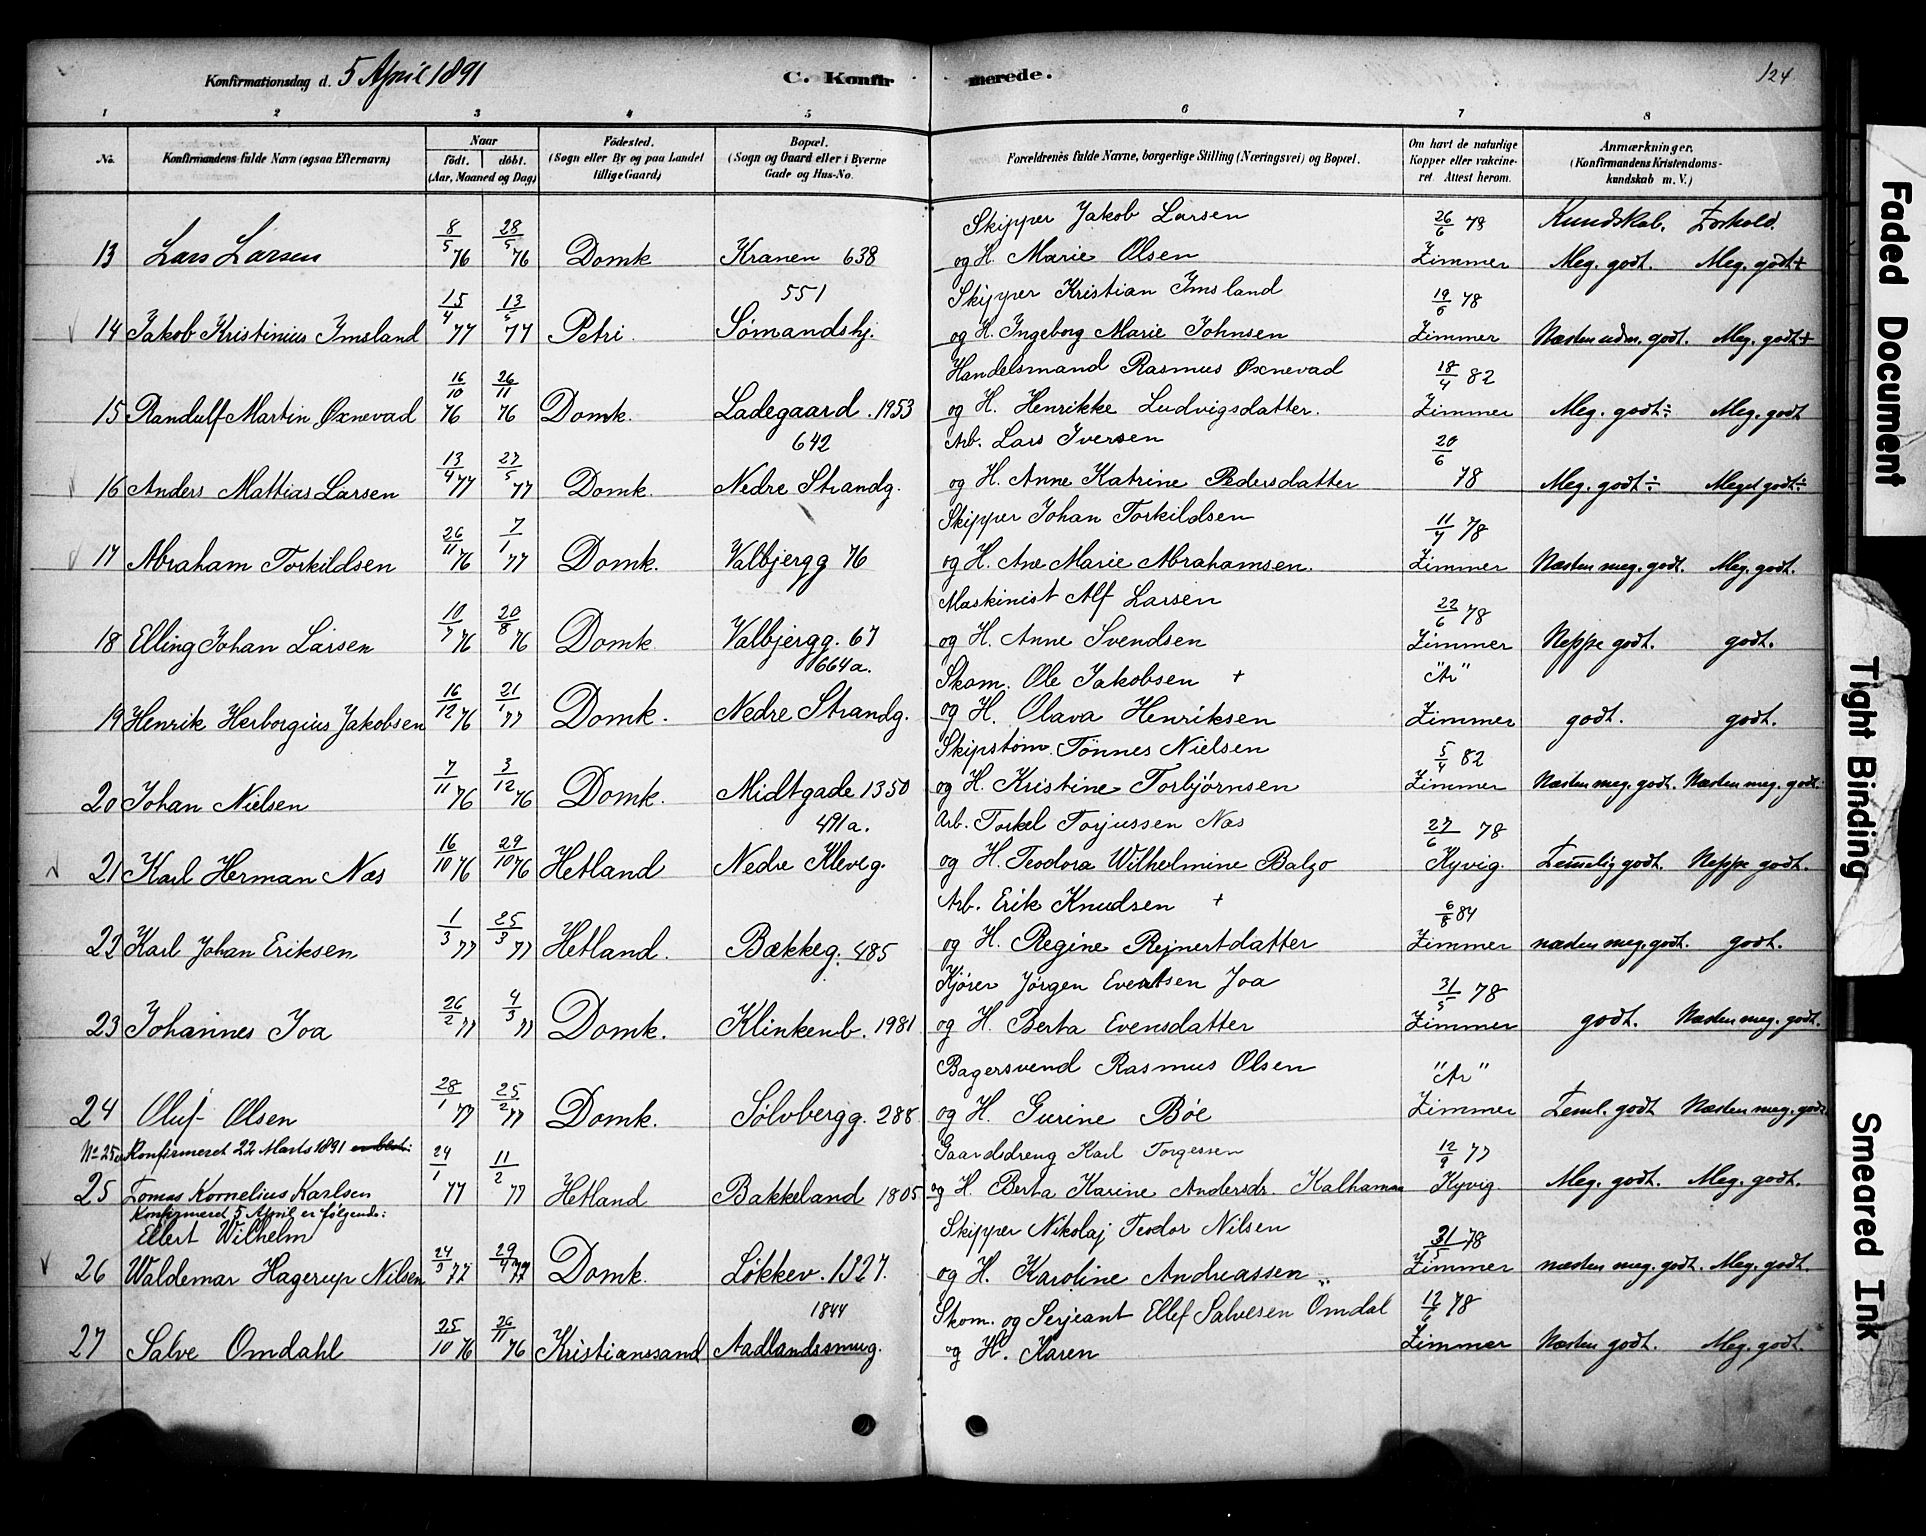 Konfirmationsdag d. 5 April 1891 C. Konfirmerede. 124
1 2 3 4 5 6 7 8
No. Konfirmandens fulde Navn (ogsaa Efternavn) Naar født. døbt. (Aar, Maaned og Dag) Fødested. (Sogn eller By og paa Landet tillige Gaard) Bopæl. (Sogn og Gaard eller i Byerne Gade og Hus-No. Forældrenes fulde Navne, borgerlige Stilling (Næringsvei) og Bopæl. Om havt de naturlige Kopper eller vakcineret. Attest herom. Anmærkninger. (Konfirmandens Kristendomskundskab m. V.)
Skipper Jakob Larsen 26/6 78 Kundskab. Forhold.
13 Lars Larsen 8/5 76 28/5 76 Domk Kranen 638 og H. Marie Olsen Zimmer Meg. godt. Meg. godt+
551 Skipper Kristian Imsland 19/6 78
14 Jakob Kristinius Imsland 15/4 77 13/5 77 Petri. Sømandshj. og H. Ingeborg Marie Johnsen Zimmer Næsten udm. godt. Meg. godt+
Handelsmand Rasmus Øxnevad 18/4 82
15 Randulf Martin Øxnevad 16/10 76 26/11 76 Domk. Ladegaard. 1953 og H. Henrikke Ludvigsdatter. Zimmer Meg. godt÷ Meg. godt
642 Arb. Lars Iversen 20/6
16 Anders Mattias Larsen 13/4 77 27/5 77 Domk. Nedre Strandg. og H. Anne Katrine Pedersdatter 78 Meg. godt÷ Meget godt÷
Skipper Johan Torkildsen 11/7 78
17 Abraham Torkildsen 26/11 76 7/1 77 Domk. Valbjergg 76 og H. Ane Marie Abrahamsen. Zimmer Næsten meg. godt. Meg. godt.
Maskinist Alf Larsen 22/6 78
18 Elling Johan Larsen 10/7 76 20/8 76 Domk. Valbjergg. 67 og H. Anne Svendsen Zimmer Neppe godt. godt.
664a. Skom. Ole Jakobsen + "Ar"
19 Henrik Herborgius Jakobsen 16/12 76 21/1 77 Domk. Nedre Strandg. og H. Olava Henriksen Zimmer godt. godt.
Skipstøm. Tönnes Nielsen 5/4 82
20 Johan Nielsen 7/11 76 3/12 76 Domk. Midtgade 1350 og H. Kristine Torbjørnsen Zimmer Næsten meg. godt. Næsten meg. godt.
491a. Arb. Torkel Torjussen Næs 27/6 78
21 Karl Herman Næs 16/10 76 29/10 76 Hetland Nedre Kleveg. og H. Teodora Wilhelmine Balzo Kyvig. Temelig godt. Neppe godt.
Arb. Erik Knudsen + 6/8 84
22 Karl Johan Eriksen 1/3 77 25/3 77 Hetland. Bækkeg. 485 og H. Regine Rejnertdatter Zimmer næsten meg. godt. godt.
Kjører Jørgen Evertsen Joa 31/5 78
23 Johannes Joa 26/2 77 4/3 77 Domk. Klinkenb. 1981 og H. Berta Evensdatter Zimmer godt. Næsten meg. godt.
Bagersvend Rasmus Olsen "Ar"
24 Oluf Olsen 28/1 77 25/2 77 Domk. Sølvbergg. 288 og H. Gurine Bøe Zimmer Teml. godt Næsten meg. godt
No 25 Konfirmeret 22 Marts 1891 Gaardsdreng Karl Torgessen 12/9 77
25 Tomas Kornelius Karlsen 24/1 77 11/2 77 Hetland Bakkeland 1805 og H. Berta Karine Andersdr. Kalhamm Kyvig. Meg. godt. Meg. godt.
Konfirmeret 5 April er følgende:
Ellert Wilhelm Skipper Nikolaj Teodor Nilsen 31/5 78
26 Waldemar Hagerup Nilsen 24/3 77 29/4 77 Domk. Løkkev. 1327. og H. Karoline Andreassen Zimmer næsten meg. godt. Meg. godt.
1844 Skom. og Serjeant Ellef Salvesen Omdal 12/6 78
27 Salve Omdahl 25/10 76 26/11 76 Kristianssand Aadlandssmug. og H. Karen Zimmer Næsten godt. Meg. godt.
Faded Document
Tight Binding
Smeared Ink